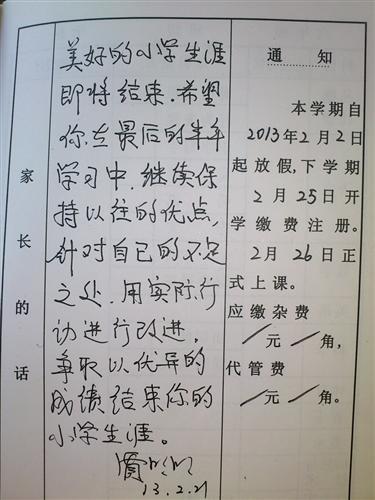 家长的话
美好的小学生涯
即将结束.希望
你在最后的半年
学习中,继续保
持以往的优点,
针对自己的不足
之处.用实际行
动进行改进,
争取以优异的
成绩结束你的
小学生涯。
13.2.21
通知
本学期自
2013年2月2日
起放假,下学期
2月25日开
学缴费注册。
2月26日正
式上课。
应缴杂费
/元/角,
代管费
/元/角。